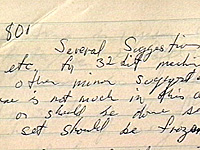 801
Several Suggestions
etc. for 32 bit machi
other minor suggest
is not much in this a
or should be done so
set should be frozen